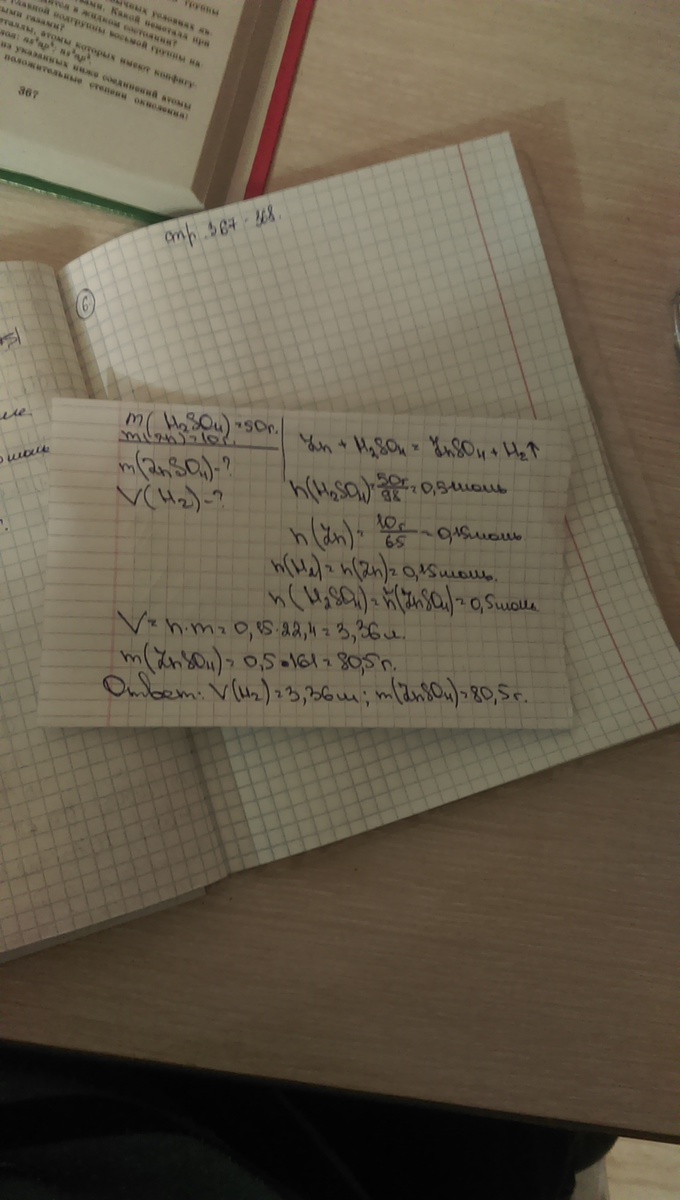 группы
обычных головках
дится в жидком состоянии?
главной подгруппы восьмой группы на-
ными газами?
металлы, атомы которых имеют конфигу-
из указанных ниже соединений атомы
положительные степени окисления:
367
стр. 367-368.
6
моль
m(H₂SO₄)=50г.
m(Zn)=10г.
m(ZnSO₄)-?
V(H₂)-?
Zn + H₂SO₄ = ZnSO₄ + H₂↑
n(H₂SO₄)=50г/98=0,5моль
n(Zn)=10г/65=0,15моль
n(H₂)=n(Zn)=0,15моль.
n(H₂SO₄)=n(ZnSO₄)=0,5моль
V=n·m=0,15·22,4=3,36л.
m(ZnSO₄)=0,5•161=80,5г.
Ответ: V(H₂)=3,36л; m(ZnSO₄)=80,5г.